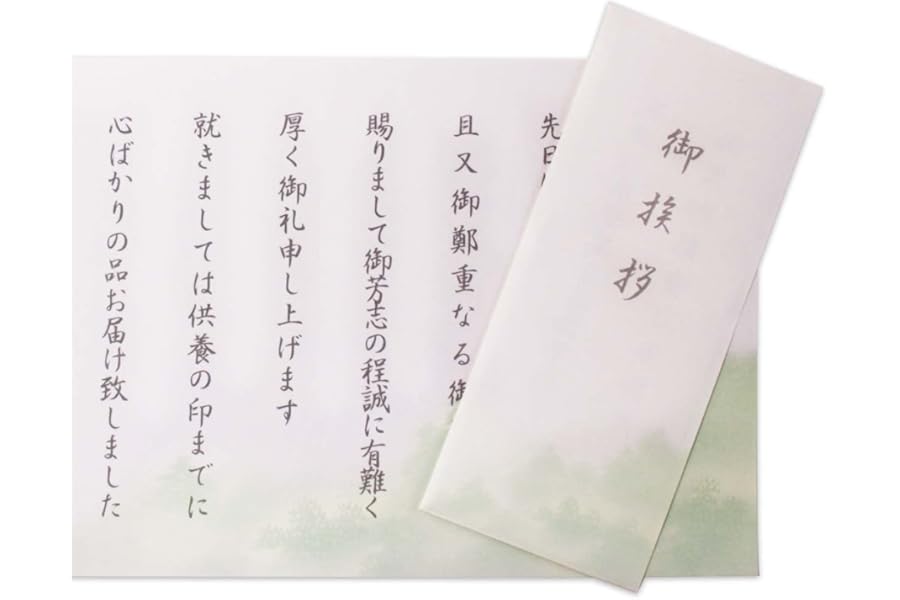 御挨拶
先日
且又御鄭重なる御
賜りまして御芳志の程誠に有難く
厚く御礼申し上げます
就きましては供養の印までに
心ばかりの品お届け致しました